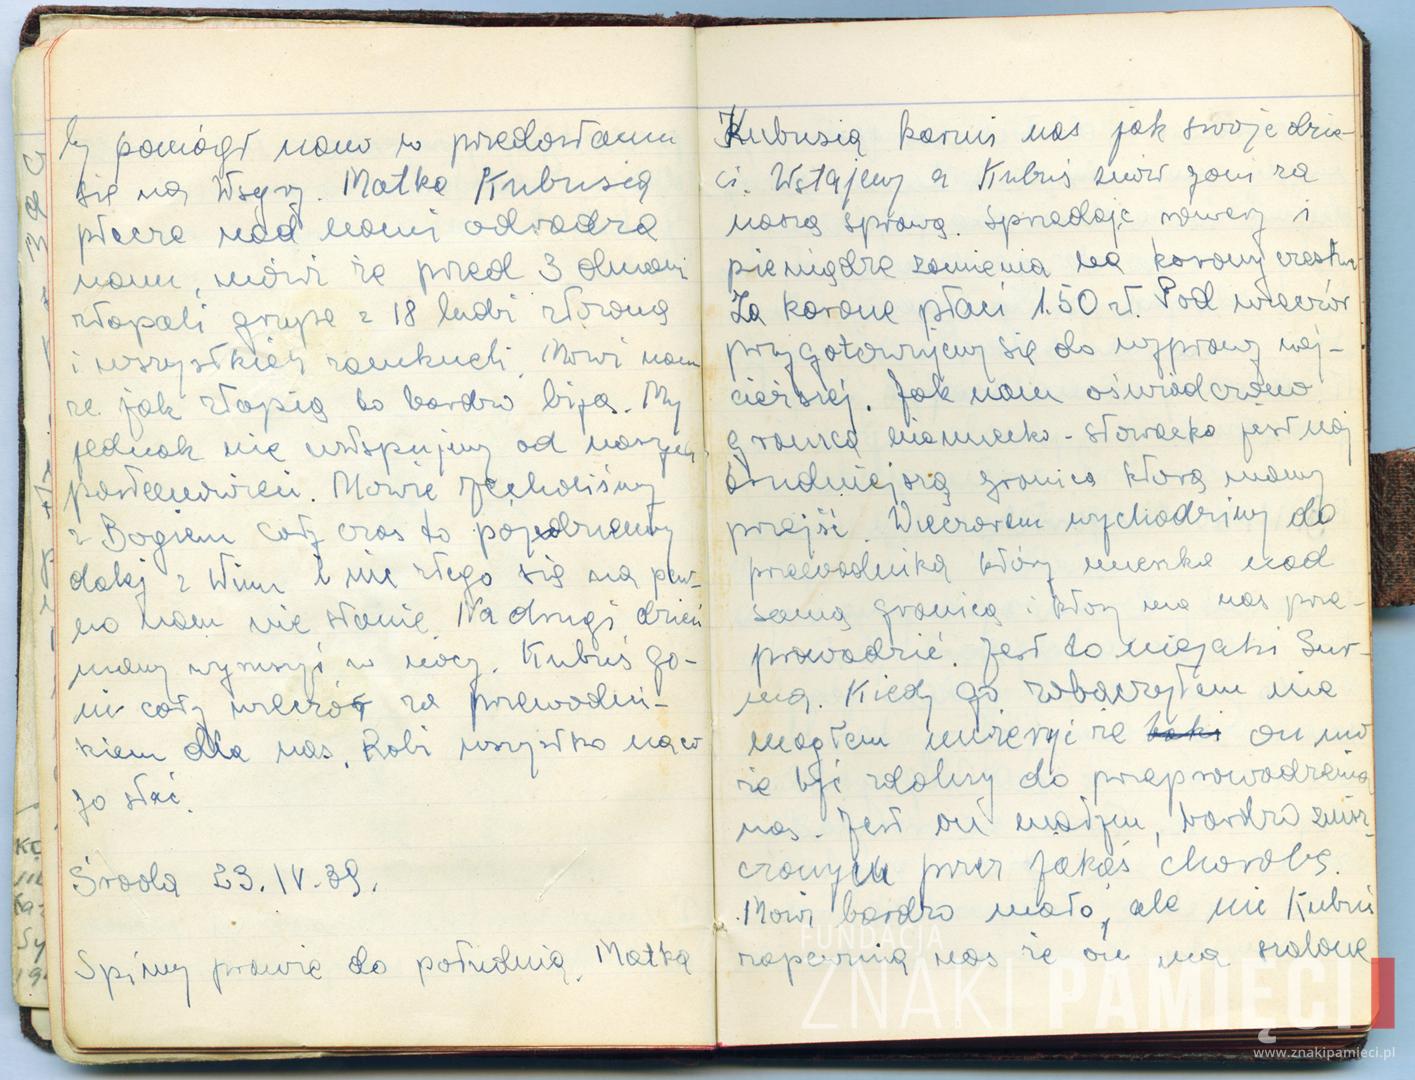 by pomógł nam w przedostaniu
się na Węgry. Matka Kubusia
płacze nad nami odradza
nam, mówi że przed 3 dniami
złapali grupę z 18 ludzi złożoną
i wszystkich zamknęli. Mówi nam
że jak złapią to bardzo biją. My
jednak nie ustępujemy od naszych
postanowień. Mówię jechaliśmy
z Bogiem cały czas to pójedziemy
dalej z Nim i nic złego się na pew-
no nam nie stanie. Na drugi dzień
mamy wyruszyć w nocy. Kubuś go-
ni cały wieczór za przewodni-
kiem dla nas. Robi wszystko na co
go stać.
Środa 23.IV.39.
Śpimy prawie do południa. Matka
Kubusia karmi nas jak swoje dzie-
ci. Wstajemy a Kubuś znów goni za
naszą sprawą. Sprzedaje rowery i
pieniądze zamienia na korony czeskie.
Za koronę płaci 1.50 zł. Pod wieczór
przygotowujemy się do wyprawy naj-
cięższej. Jak nam oświadczono
granica niemiecko-słowacka jest naj
trudniejszą granicą którą mamy
przejść. Wieczorem wychodzimy do
przewodnika który mieszka nad
samą granicą i który ma nas prze-
prowadzić. Jest to niejaki Sur-
ma. Kiedy go zobaczyłem nie
mogłem uwierzyć że on mo
że być zdolny do przeprowadzenia
nas. Jest on małym, bardzo znisz-
czonym przez jakąś chorobę.
Mówi bardzo mało, ale nic Kubuś
zapewnia nas że on ma szalone
FUNDACJA
ZNAKI PAMIĘCI
www.znakipamieci.pl